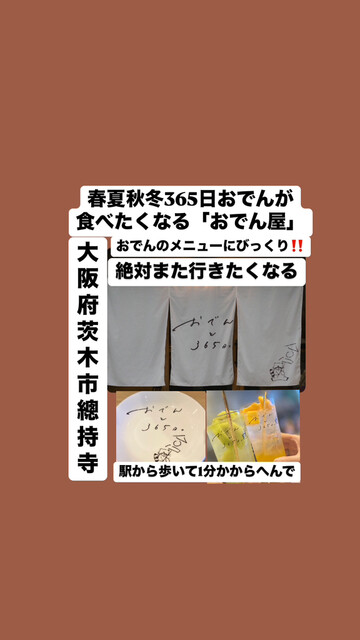 春夏秋冬365日おでんが
食べたくなる「おでん屋」
おでんのメニューにびっくり‼️
絶対また行きたくなる
大阪府茨木市總持寺
おでん
と
365。
おでん
と
365。
駅から歩いて1分かからへんで